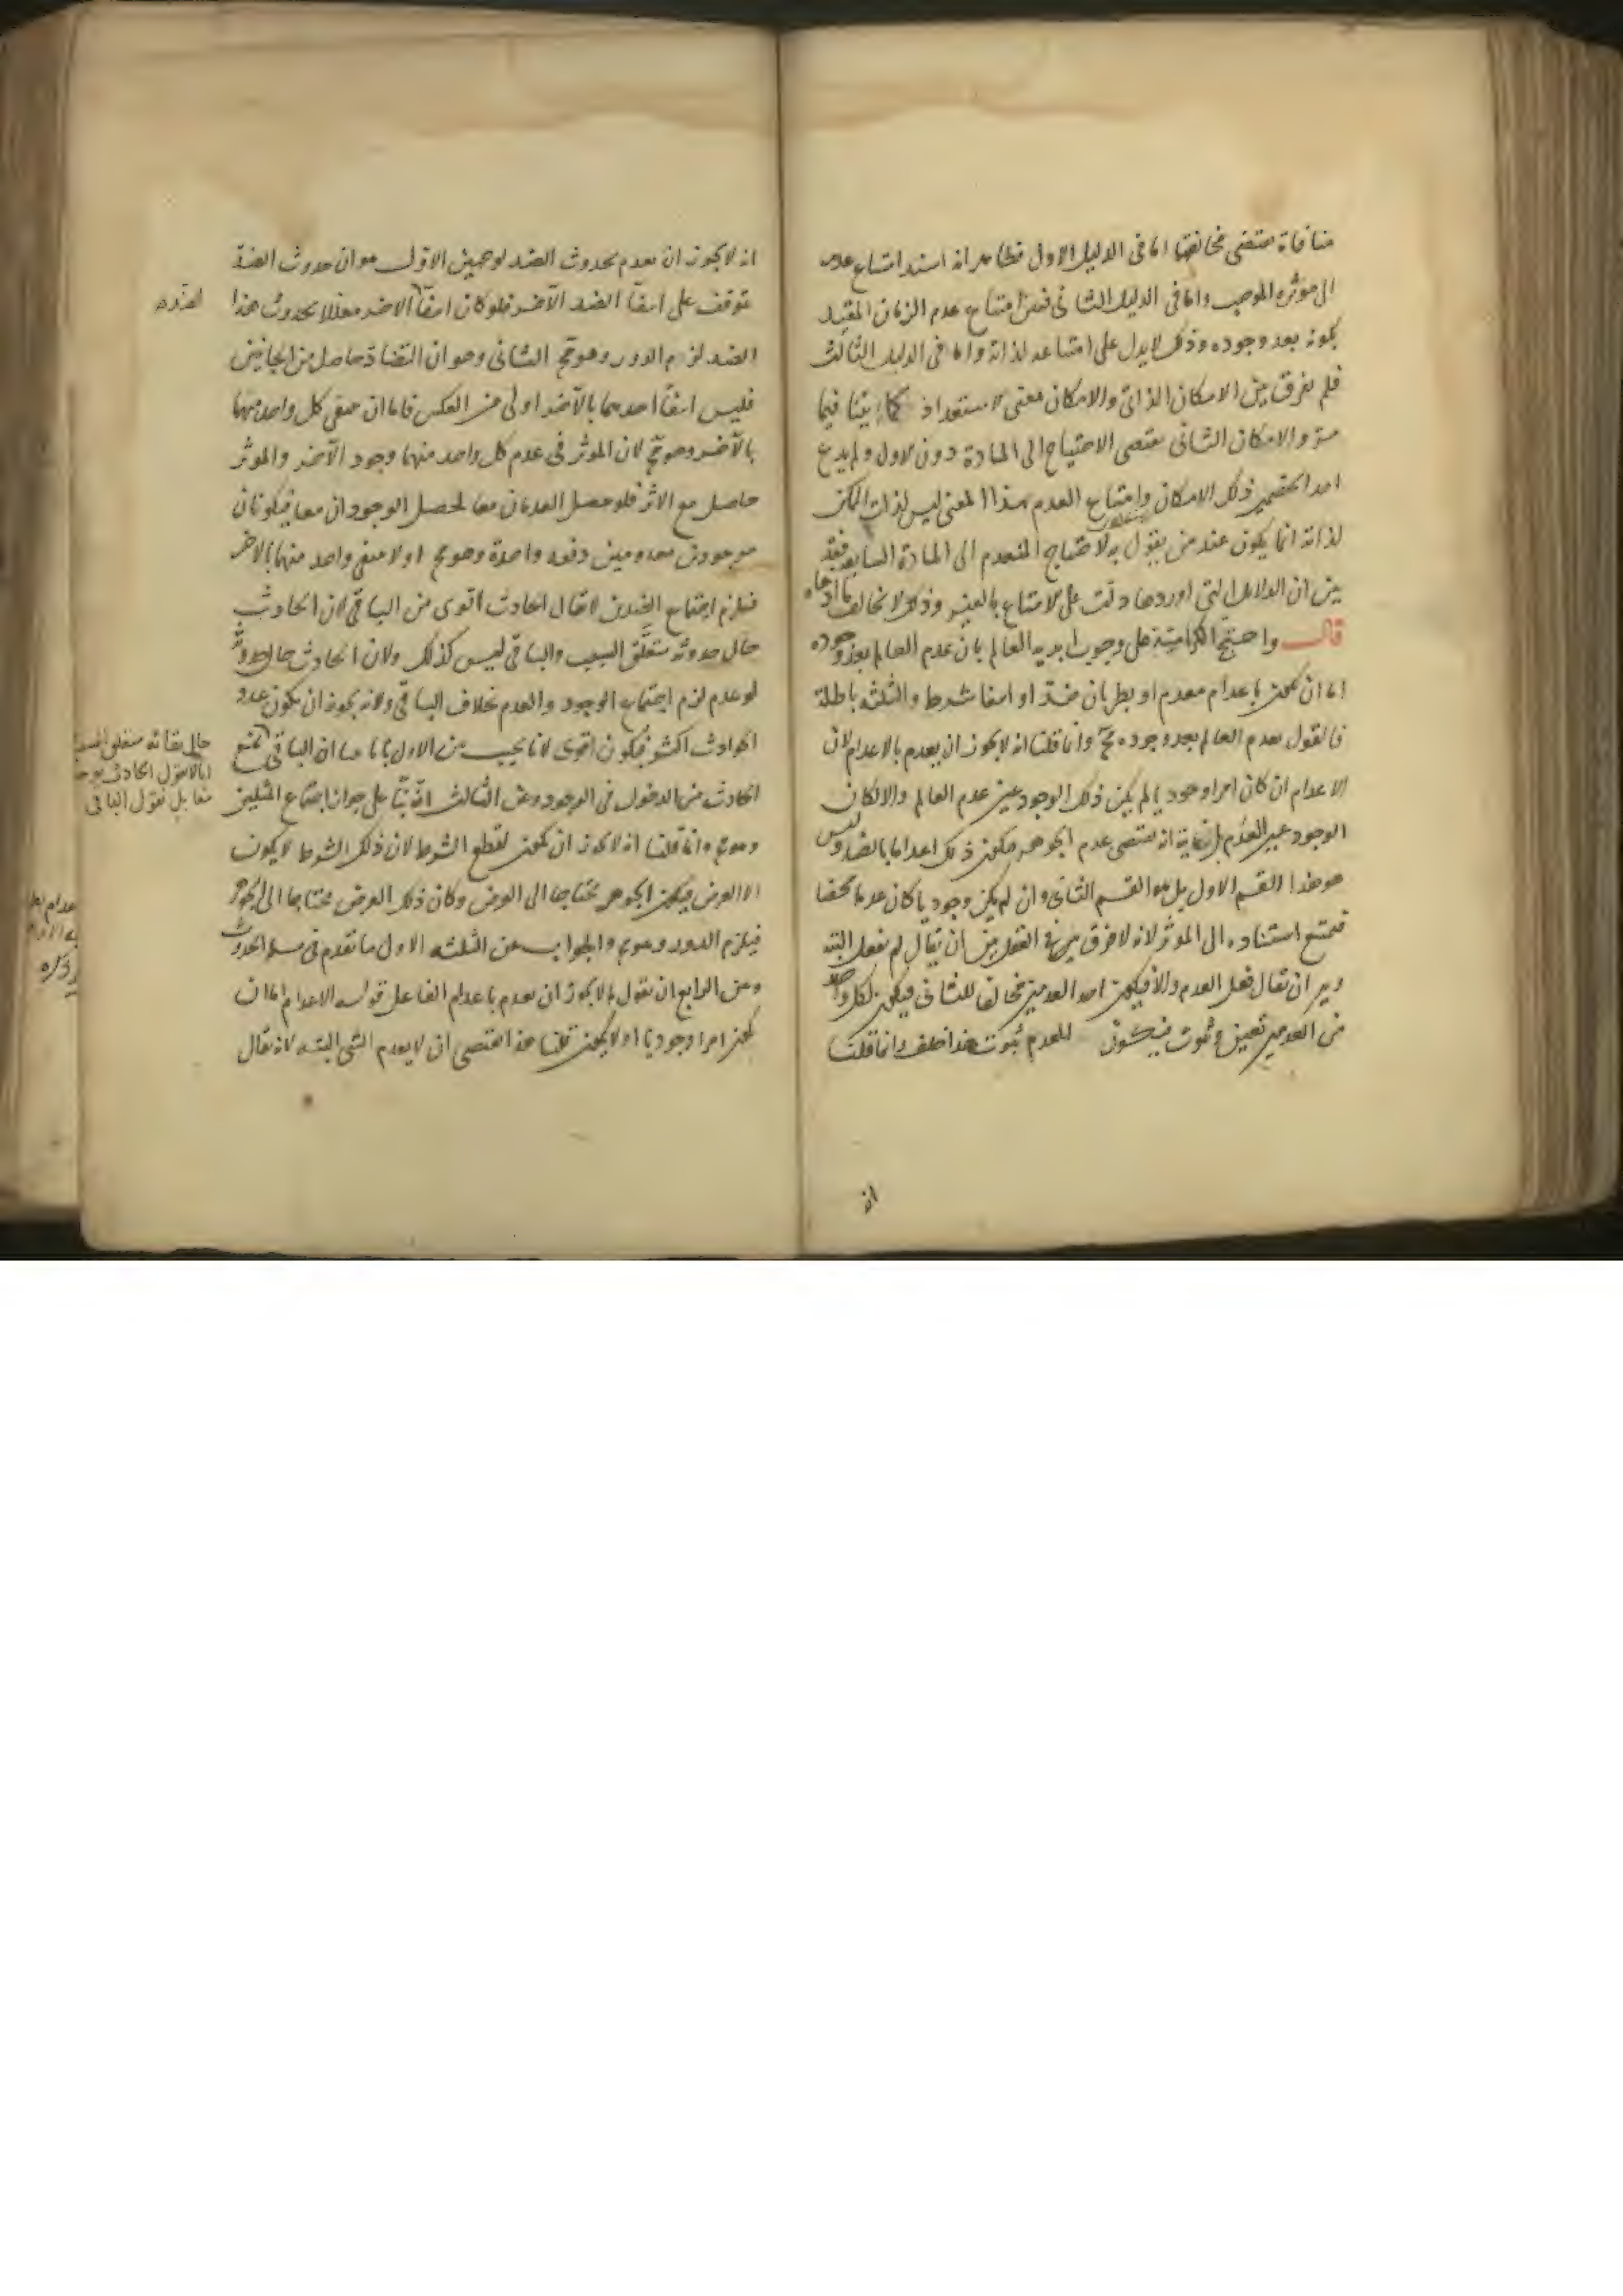 منافاة مقتضى مخالفتها اما فى الدليل الاول فظاهر انه اسند امتناع عدمه
الى موثره الموجب واما فى الدليل الثانى فبين امتناع عدم الزمان المقيد
بكونه بعد وجوده وذلك لا يدل على امتناعه لذاته واما فى الدليل الثالث
فلم يفرق بين الامكان الذاتى والامكان بمعنى الاستعداد كما بينا فيما
مر والامكان الثانى يقتضى الاحتياج الى المادة دون الاول ولم يدع
احد الخصمين ذلك الامكان وامتناع العدم بهذا المعنى ليس لذات الممكن
لذاته انما يكون عند من يقول به لاحتياج المنعدم الى المادة السابقة فقد
بين ان الدلائل التى اوردها دلت على الامتناع بالغير وذلك لا يخالف ما ادعاه
قال واحتج الكرامية على وجوب ابدية العالم بان عدم العالم بعد وجوده
اما ان يكون باعدام معدم او بطريان ضد او انتفا شرط والثلثة باطلة
فالقول بعدم العالم بعد وجوده مح وانما قلنا انه لا يجوز ان يعدم بالاعدام لان
الاعدام ان كان امرا وجوديا لم يكن ذلك الوجود عين عدم العالم والا لكان
الوجود عين العدم بل غايته انه يقتضى عدم الجوهر فيكون ذلك اعداما بالضد وليس
هو هذا القسم الاول بل هو القسم الثانى وان لم يكن وجوديا كان عدما محضا
فيمتنع استناده الى الموثر لانه لا فرق فى العقل بين ان يقال لم يفعل البتة
وبين ان يقال فعل العدم والا فيكون احد العدمين مخالفا للثانى فيكون لكل واحد
من العدمين تعين وثبوت فيكون للعدم ثبوت هذا خلف وانما قلنا
انه
انه لا يجوز ان يعدم بحدوث الضد لوجهين الاول هو ان حدوث الضد
يتوقف على انتفا الضد الآخر فلو كان انتفا الاخر معللا بحدوث هذا
الضد لزم الدور وهو مح الثانى وهو ان التضاد حاصل من الجانبين
فليس انتفا احدهما بالآخر اولى من العكس فاما ان ينتفى كل واحد منهما
بالآخر وهو مح لان الموثر فى عدم كل واحد منهما وجود الآخر والموثر
حاصل مع الاثر فلو حصل العدمان معا لحصل الوجودان معا فيكونان
موجودين معدومين دفعة واحدة وهو مح او لا ينتفى واحد منهما بالاخر
فيلزم اجتماع الضدين لا يقال الحادث اقوى من الباقى لان الحادث
حال حدوثه متعلق السبب والباقى ليس كذلك ولان الحادث حال حدوثه
لو عدم لزم اجتماع الوجود والعدم بخلاف الباقى ولانه يجوز ان يكون عدد
الحوادث اكثر فيكون اقوى لانا نجيب عن الاول بانا بينا ان الباقى
حال بقائه متعلق السبب
الحادث من الدخول فى الوجود وعن الثالث انه بنا على جواز اجتماع المثلين
وهو مح وانما قلنا انه لا يجوز ان يكون لقطع الشرط لان ذلك الشرط لا يكون
الا العرض فيكون الجوهر محتاجا الى العرض وكان ذلك العرض محتاجا الى الجوهر
فيلزم الدور وهو مح والجواب عن الثلثة الاول ما تقدم فى مسلة الحدوث
وعن الرابع ان نقول لم لا يجوز ان يعدم باعدام الفاعل قوله الاعدام اما ان
يكون امرا وجوديا او لا يكون قلنا هذا يقتضى ان لا يعدم الشى البتة لانه يقال